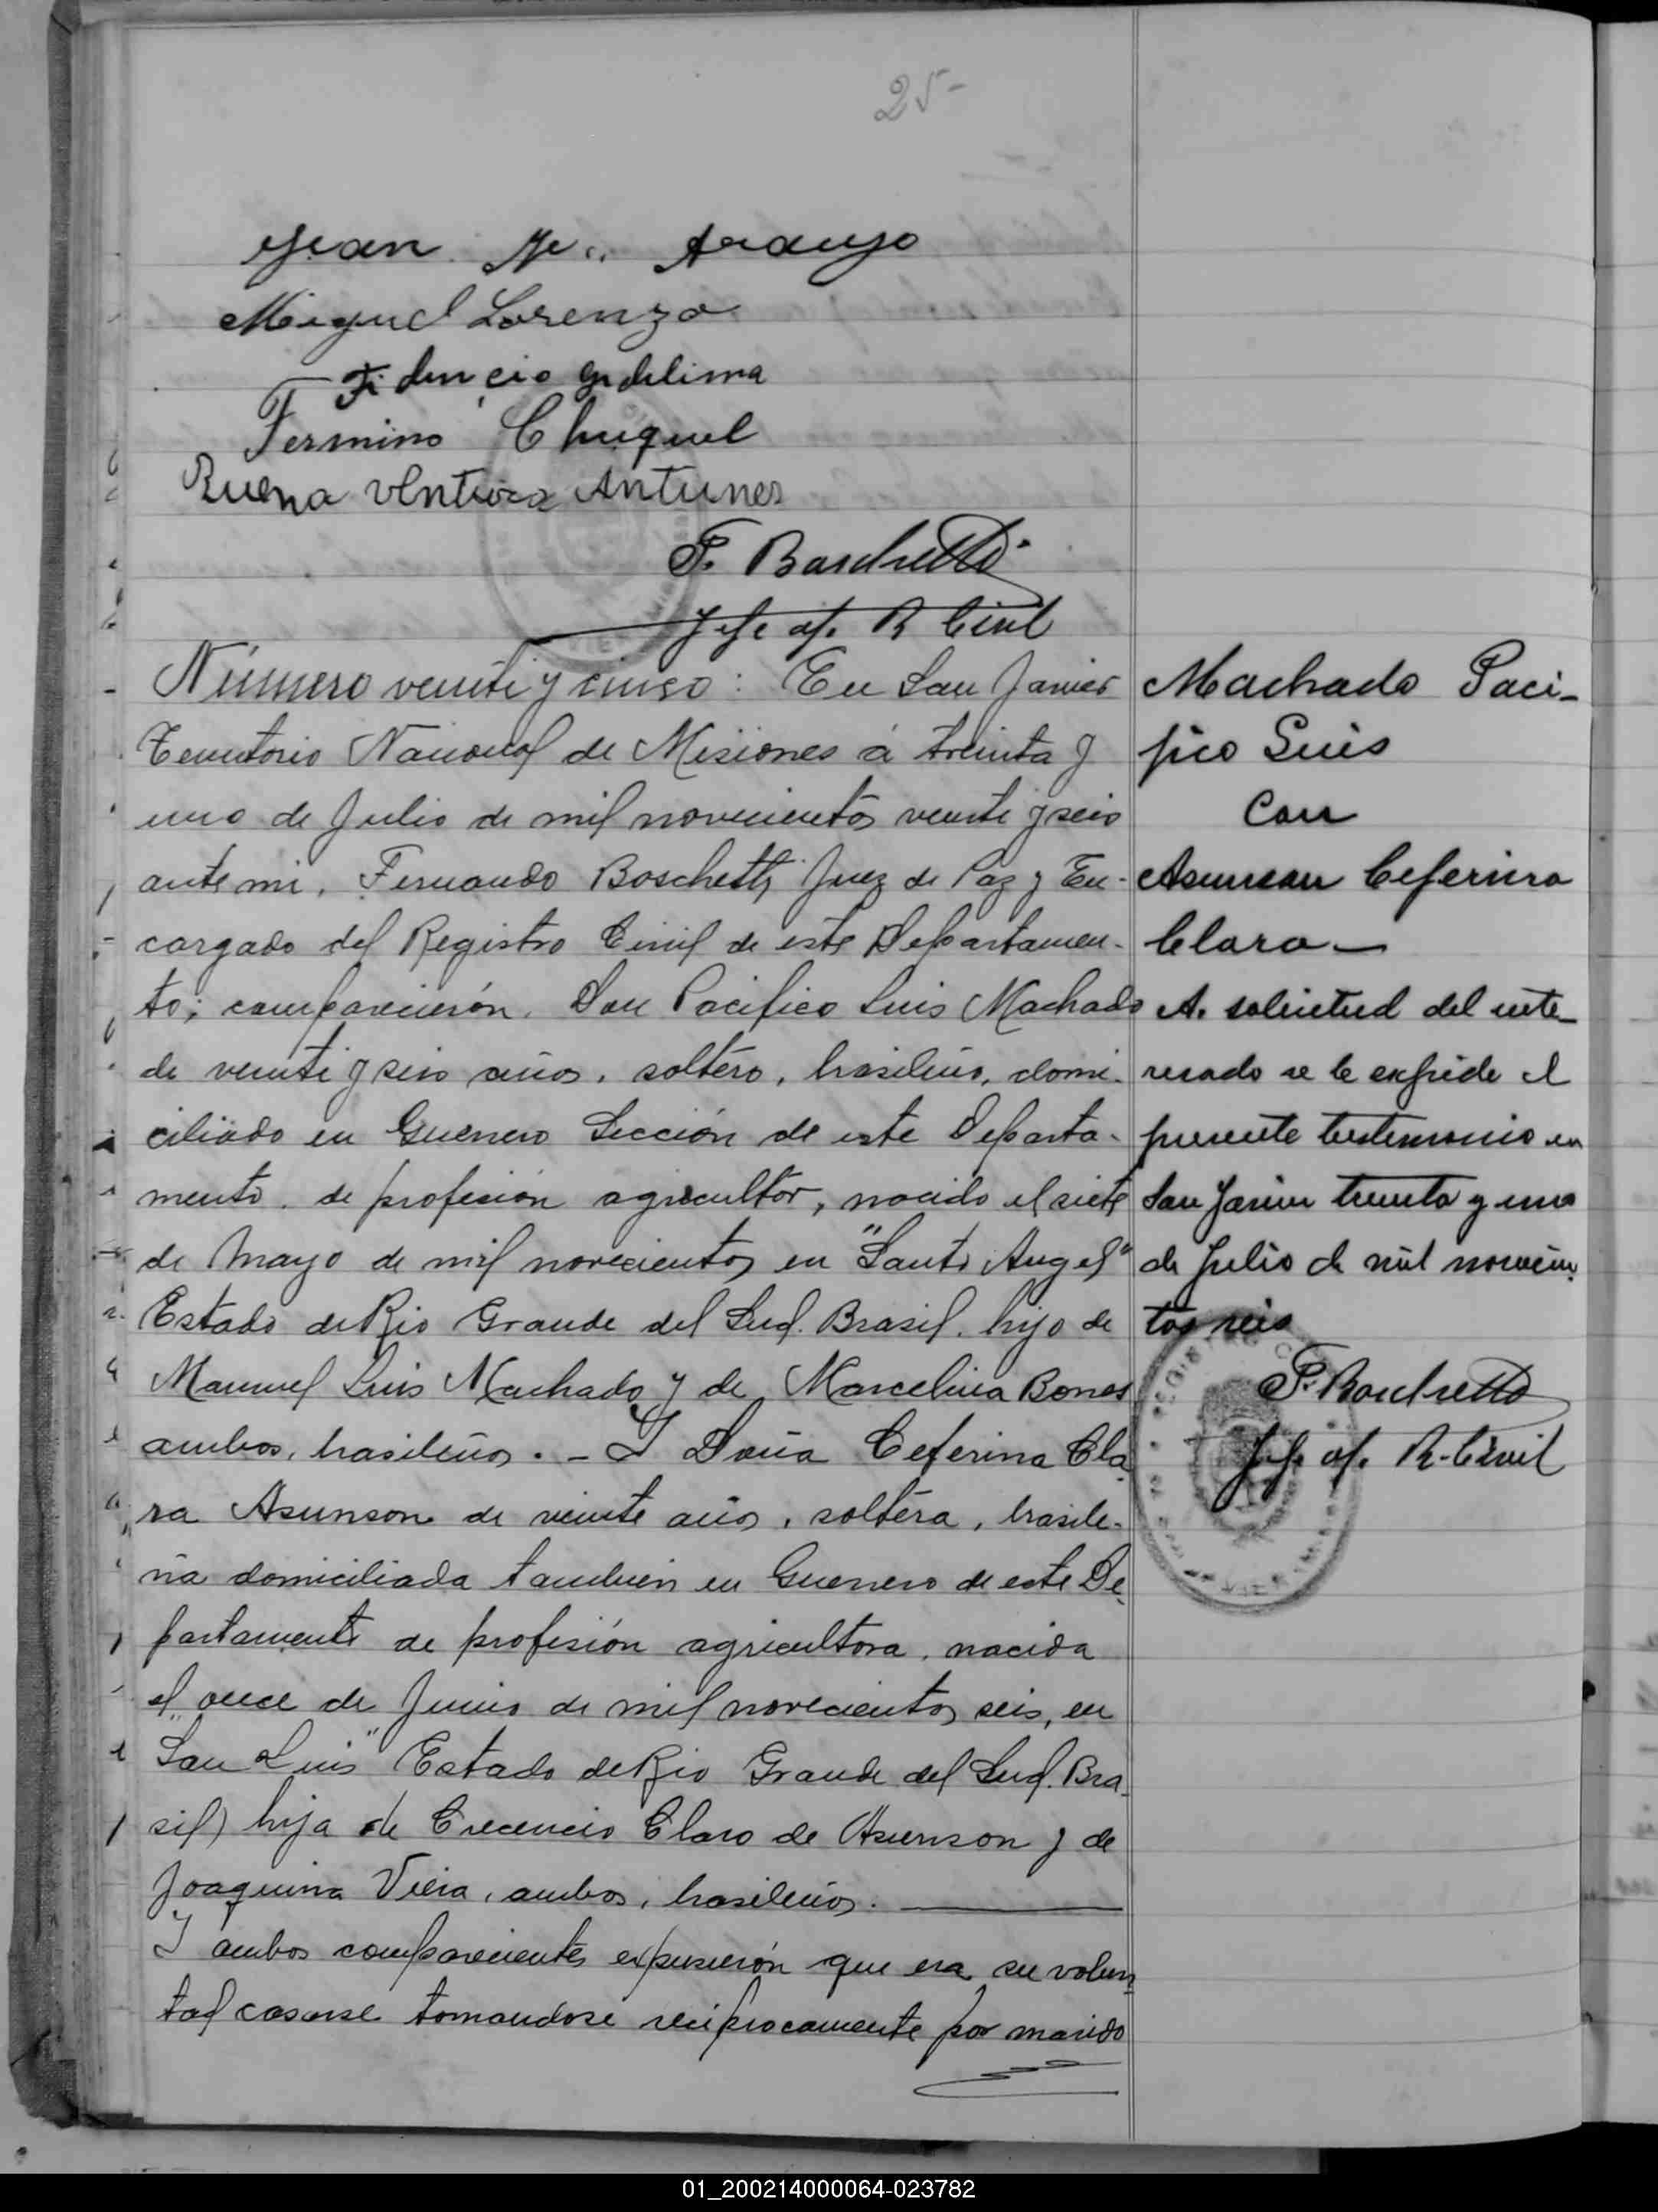 25-
Juan M. Araujo
Miguel Lorenzo
Fidencio Gr delima
Fermino Chuquel
Buena ventura Antunes
F. Boschetti
Jefe of. R Civil
Número veinte y cinco: En San Javier
Territorio Nacional de Misiones á treinta y
uno de Julio de mil novecientos veinte y seis
ante mi, Fernando Boschetti Juez de Paz y En-
cargado del Registro Civil de este Departamen-
to; comparecierón. Don Pacifico Luis Machado
de veinte y seis años, soltero, brasileño, domi-
ciliado en Guerrero Sección de este Departa-
mento. de profesión agricultor, nacido el siete
de Mayo de mil novecientos en "Santo Angel"
Estado de Rio Grande del Sud. Brasil. hijo de
Manuel Luis Machado y de Marcelina Bones
ambos, brasileños. - Y Doña Ceferina Cla-
ra Asunson de veinte años, soltera, brasile-
ña domiciliada tambien en Guerrero de este De-
partamento de profesión agricultora, nacida
el once de Junio de mil novecientos seis, en
"San Luis" Estado de Rio Grande del Sud. Bra-
sil) hija de Crecencio Claro de Asunson y de
Joaquina Vieia, ambos, brasileños.
Y ambos comparecientes expusierón que era su volun-
tad casarse tomandose reciprocamente por marido
Machado Paci-
fico Luis
Con
Asunson Ceferina
Clara
A. solicitud del inte-
resado se le expide el
presente testimonio en
San Javier treinta y uno
de Julio de mil novecien-
tos seis
F. Boschetti
Jefe of. R. Civil
01_200214000064-023782